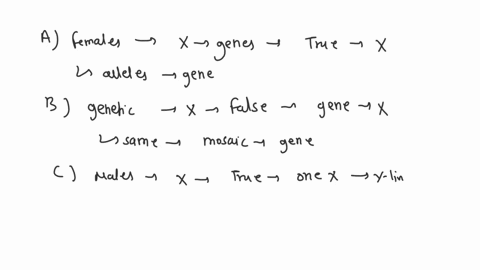 A) females → X → genes → True → X
↳ alleles → gene
B) genetic → X → false → gene → X
↳ same → mosaic → gene
C) Males → X → True → one X → Y-lin